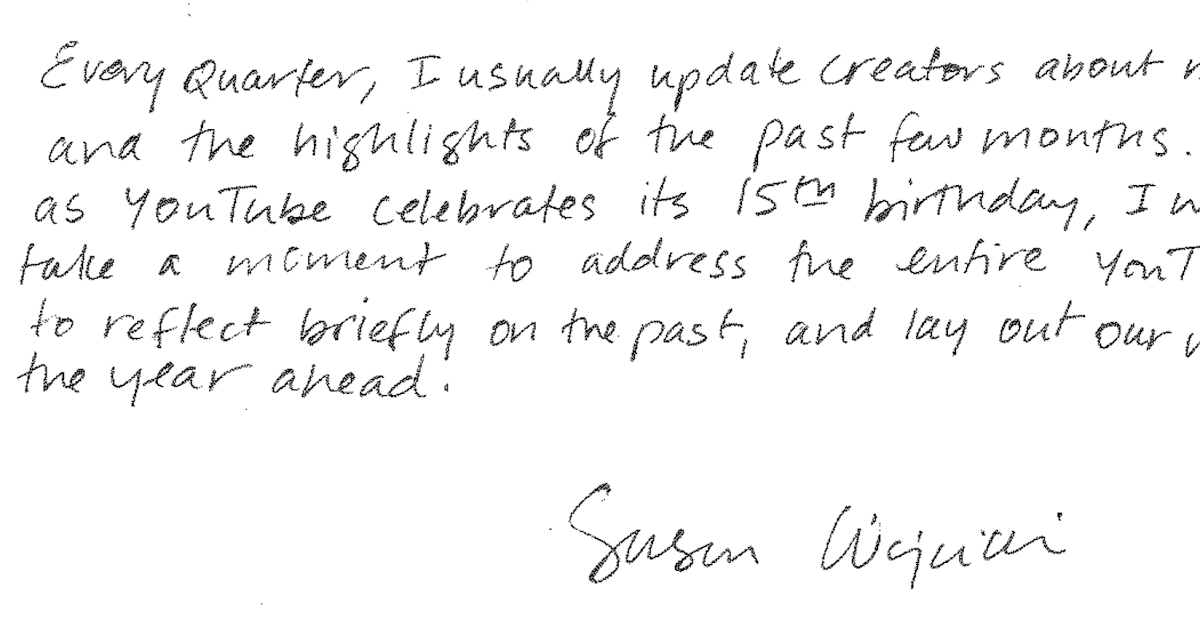 Every Quarter, I usually update creators about
and the highlights of the past few months.
as YouTube celebrates its 15th birthday, I
take a moment to address the entire YouT
to reflect briefly on the past, and lay out our
the year ahead.
Susan Wojcicki